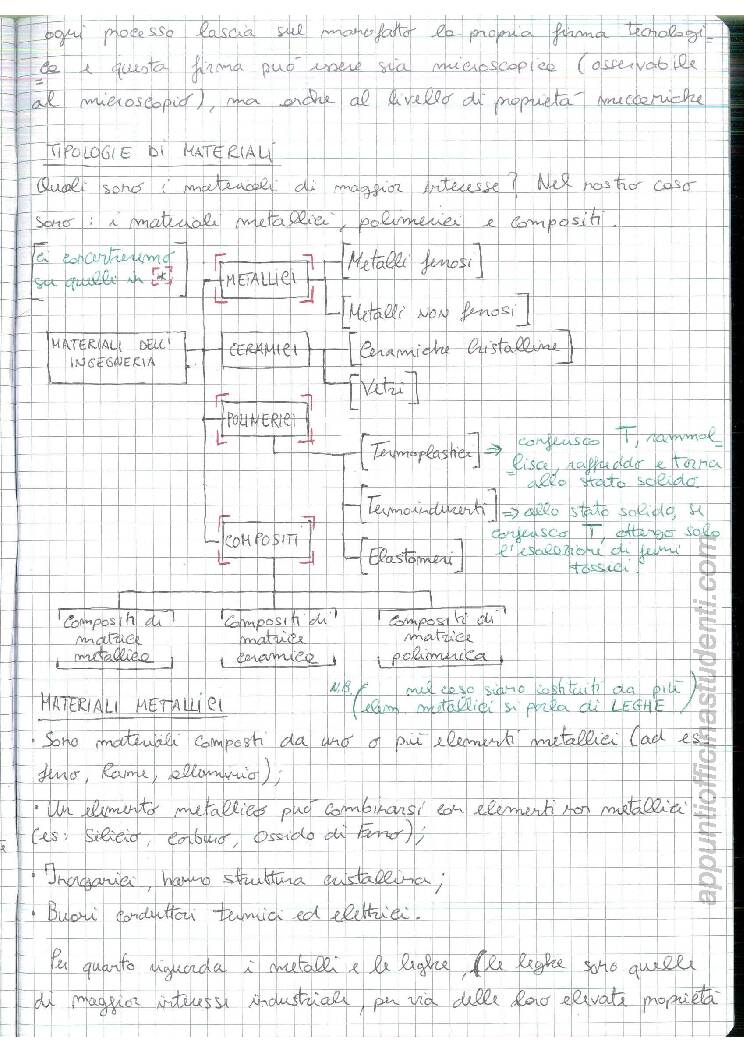 ogni processo lascia sul manofatto la propria firma tecnologi-
ca e questa firma può essere sia microscopica (osservabile
al microscopio), ma anche al livello di proprietà meccaniche
TIPOLOGIE DI MATERIALI
Quali sono i materiali di maggior interesse? Nel nostro caso
sono: i materiali metallici, polimerici e compositi.
[ci concentreremo
su quelli in [*]]
METALLICI
[Metalli ferrosi]
[Metalli NON ferrosi]
MATERIALI DELL'
INGEGNERIA
CERAMICI
[Ceramiche Cristalline]
[Vetri]
POLIMERICI
[Termoplastici] => conferisco T, rammol-
lisce, raffreddo e torna
allo stato solido.
[Termoindurenti] => allo stato solido, se
conferisco T, ottengo solo
l'esalazione di fumi
tossici.
[Elastomeri]
COMPOSITI
Compositi di
matrice
metallica
Compositi di
matrice
ceramica
Compositi di
matrice
polimerica
MATERIALI METALLICI
N.B. (nel caso siano costituiti da più
elem. metallici si parla di LEGHE)
· Sono materiali composti da uno o più elementi metallici (ad es.
ferro, Rame, alluminio);
· Un elemento metallico può combinarsi con elementi non metallici
(es: Silicio, carburo, Ossido di Ferro);
· Inorganici, hanno struttura cristallina;
· Buoni conduttori termici ed elettrici.
Per quanto riguarda i metalli e le leghe, (le leghe sono quelle
di maggior interesse industriale, per via delle loro elevate proprietà
appuntiofficinastudenti.com